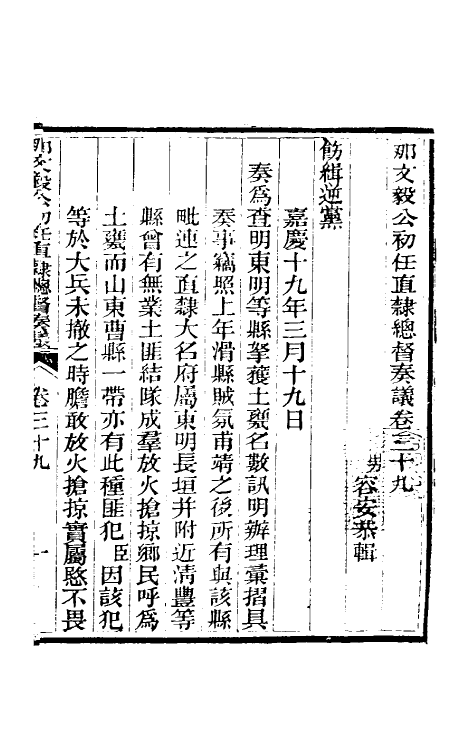 那文毅公初任直隸總督奏議卷三十九
男容安恭輯
飭緝逆黨
嘉慶十九年三月十九日
奏爲查明東明等縣拏獲土㐮名數訊明辦理彙摺具
奏事竊照上年滑縣賊氛甫靖之後所有與該縣
毗連之直隸大名府屬東明長垣并附近清豐等
縣曾有無業土匪結隊成羣放火搶掠鄉民呼爲
土㐮而山東曹縣一帶亦有此種匪犯臣因該犯
等於大兵未撤之時膽敢放火搶掠實屬愍不畏
那文毅公初任直隸總督奏議
卷三十九
一